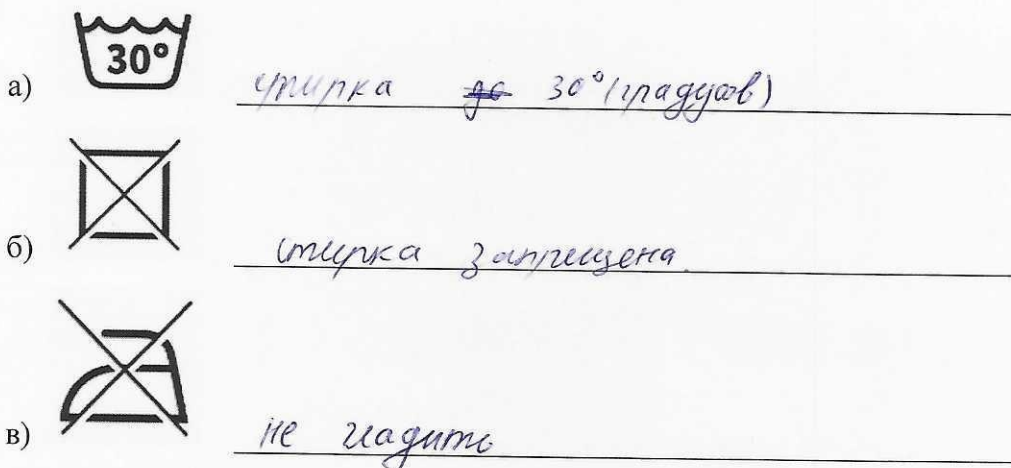 30°
а) стирка до 30° (градусов)
б) стирка запрещена.
в) не гладить